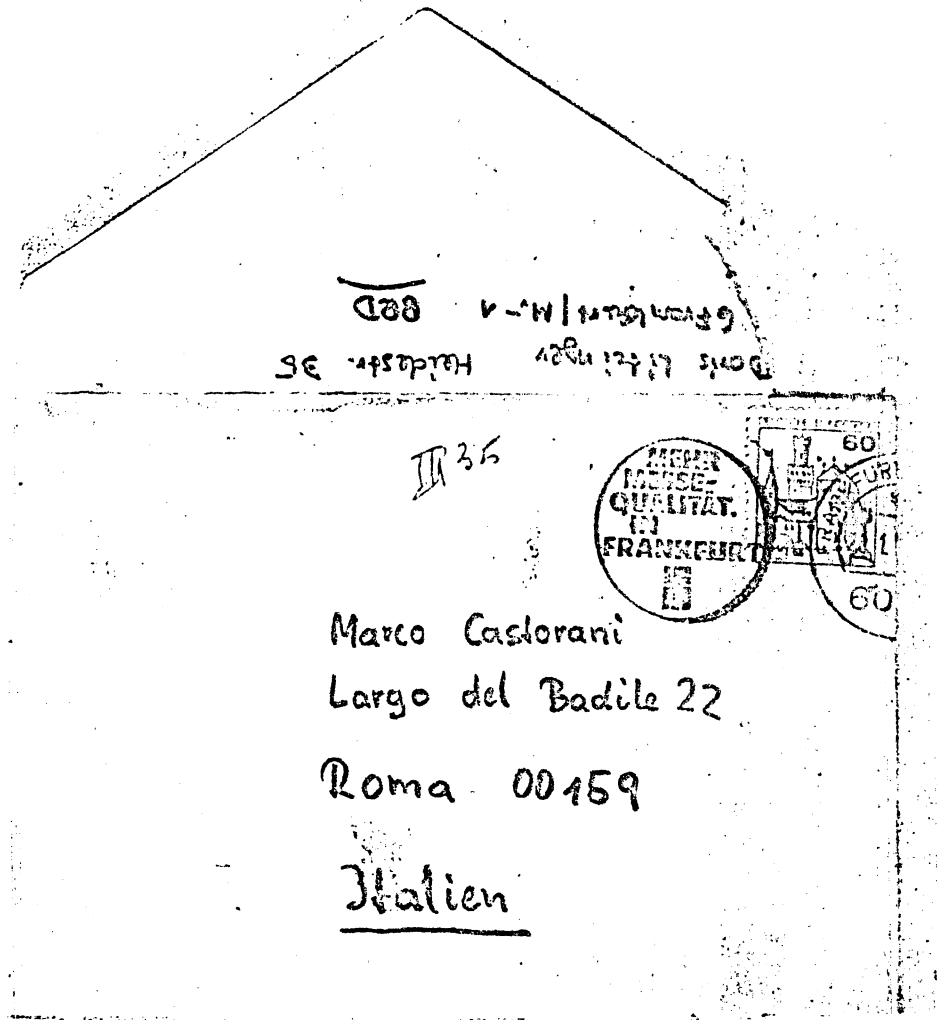 Doris Litzinger Heidestr. 36
6 Frankfurt/M.-1 BRD
III 35
60
MEHR
MESSE-
QUALITÄT.
IN
FRANKFURT
60
Marco Castorani
Largo del Badile 22
Roma 00159
Italien